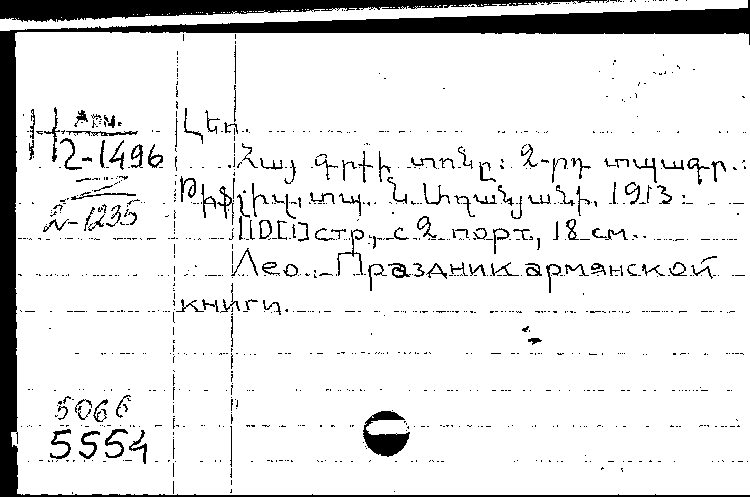 Арм.
2-1496
2-1235
Լեո.
Հայ գրքի տոնը: 2-րդ տպագր.:
Թիֆլիս, տպ. Ն. Աղանյանի, 1913:
110[1] стр., с 2 порт, 18 см.
Лео.- Праздник армянской
книги.
5066
5554